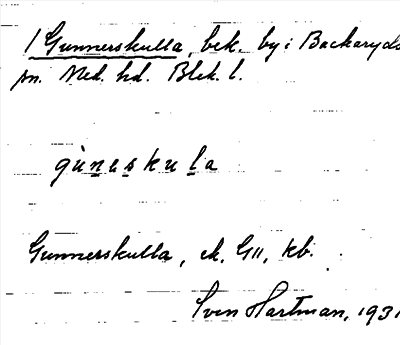 1 Gunnerskulla, bek. by i Backaryds
sn. Med. hd. Blek. l.
gùneskula
Gunnerskulla, ek. G11, kb.
Sven Hartman, 1931